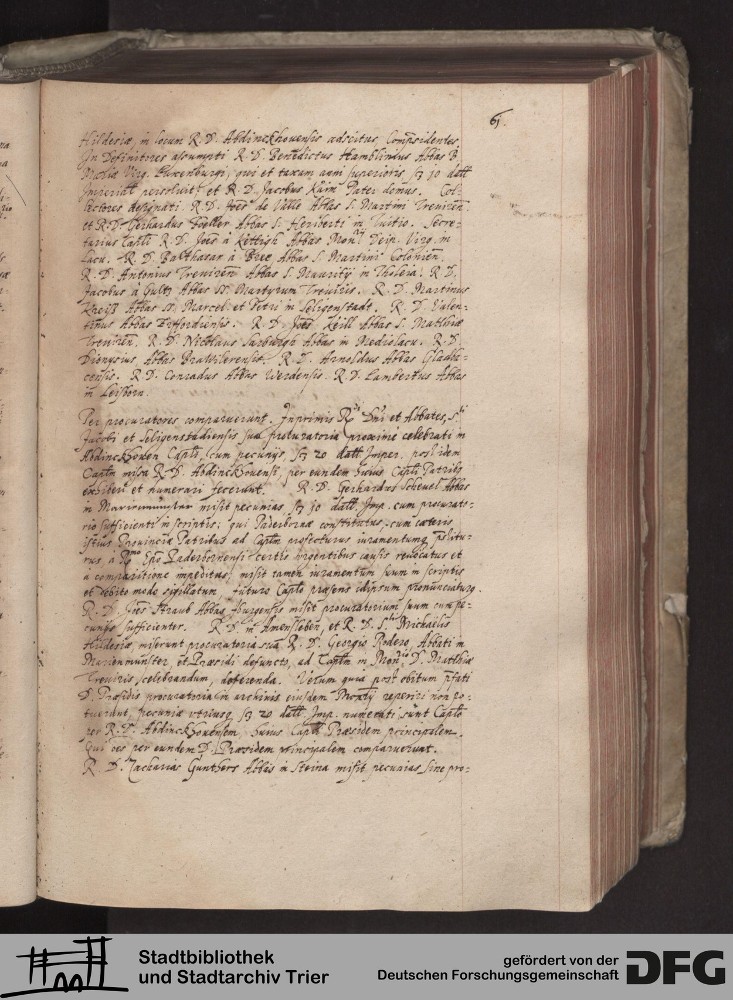 61.
Hildesiæ, in locum R. D. Abdinckhouensis adscitus Compresidentes.
In Definitores assumpti R. D. Benedictus Hamblinus Abbas B.
Mariæ Virg. Luxenburgi, qui et taxam anni superioris 10 dall
Imperial persoluit, et R. D. Jacobus Pater domus. Col-
lectores designati. R. D. Joes de Valle Abbas S. Martini Treuiren.
et R. D. Gerhardus Abbas S. Heriberti in Tuitio. Secre-
tarius Captli R. D. Joes à Kettigh Abbas Monrÿ Deip. Virg. in
Lacu. R. D. Balthasar à Abbas S. Martini Colonien.
R. D. Antonius Treuiren Abbas S. Mauritÿ in Tholeia. R. D.
Jacobus à Gultz Abbas SS. Martyrum Treuiris. R. D. Martinus
Abbas SS. Marcel: et Petri in Seligenstadt. R. D. Valen-
tinus Abbas Erffordiensis. R. D. Joes Keill Abbas S. Mathiæ
Treuiren. R. D. Nicolaus Sarburgh Abbas in Mediolacu. R. D.
Dionysius Abbas Brawilerensis. R. D. Arnoldus Abbas Gladba-
censis. R. D. Conradus Abbas Werdensis. R. D. Lambertus Abbas
in Leisborn.
Per procuratores comparuerunt. Inprimis R. Dni et Abbates, S.
Jacobi et Seligenstadiensis sua procuratoria proxime celebrati in
Abdinckhouen Captlo, cum pecunÿs, 20 dall Imper. post idem
Captlm missa R. D. Abdinckhouensi, per eundem huius Captli Patribus
exhiberi et numerari fecerunt. R. D. Gerhardus Scheuel Abbas
in misit pecunias 10 dall Imp. cum procurato-
rio sufficienti in scriptis; qui Paderbornæ constitutus, cum cæteris
istius Prouinciæ Patribus ad Captlm profecturus iuramentumq. prestitu-
rus, à Rmo Epo Paderbornensi certis urgentibus causis reuocatus et
à comparitione impeditus, misit tamen iuramentum suum in scriptis
et debito modo sigillatum, futuro Captlo præsens idipsum pronunciaturus.
R. D. Joes Straub Abbas Iburgensis misit procuratorium suum cum pe-
cunÿs sufficienter. R. D. in Amensleben, et R. D. S. Michaelis
Hildesiæ, miserunt procuratoria sua R. D. Georgio Rodero, Abbati in
Marienmünster, et Præsidi defuncto, ad Captlm in Monrio D. Matthiæ
Treuiris celebrandum, deferenda. Verum quia post obitum pfati
D. Præsidis procuratoria in archiuis eiusdem Monrÿ reperiri non po-
tuerunt, pecuniæ utriusq 20 dall Imp. numerati sunt Captlo
per R. D. Abdinckhouensem, huius Captli Præsidem principalem.
Qui oes per eundem D. Præsidem principalem comparuerunt.
R. D. Zacharias Gunthero Abbas in Steina misit pecunias sine pro-
Stadtbibliothek
und Stadtarchiv Trier
gefördert von der
Deutschen Forschungsgemeinschaft
DFG